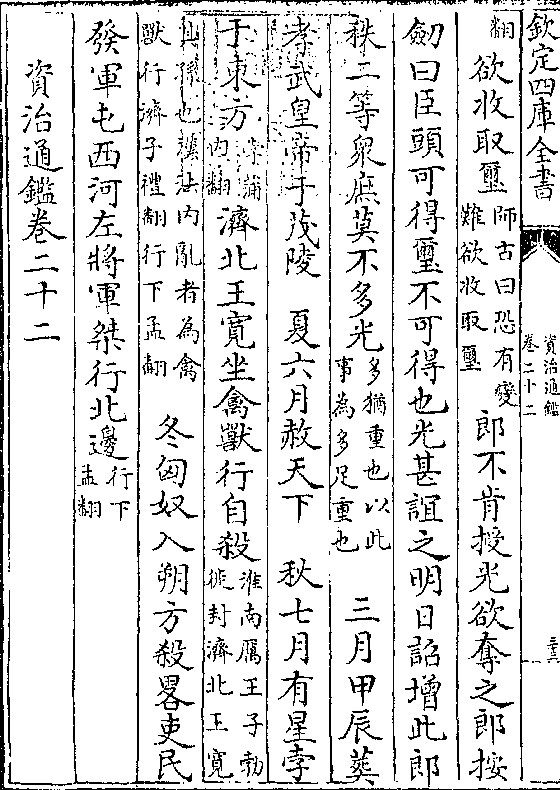 欽定四庫全書
資治通鑑
卷二十二
三十三
翻欲收取璽師古曰恐有變難欲收取璽郎不肯授光欲奪之郎按
劒曰臣頭可得璽不可得也光甚誼之明日詔增此郎
秩二等衆庶莫不多光多猶重也以此事為多足重也 三月甲辰葬
孝武皇帝于茂陵 夏六月赦天下 秋七月有星孛
于東方孛蒲內翻 濟北王寬坐禽獸行自殺淮南厲王子勃徙封濟北王寬
其孫也漢法內亂者為禽獸行濟子禮翻行下孟翻 冬匈奴入朔方殺畧吏民
發軍屯西河左將軍桀行北邊行下孟翻
資治通鑑卷二十二